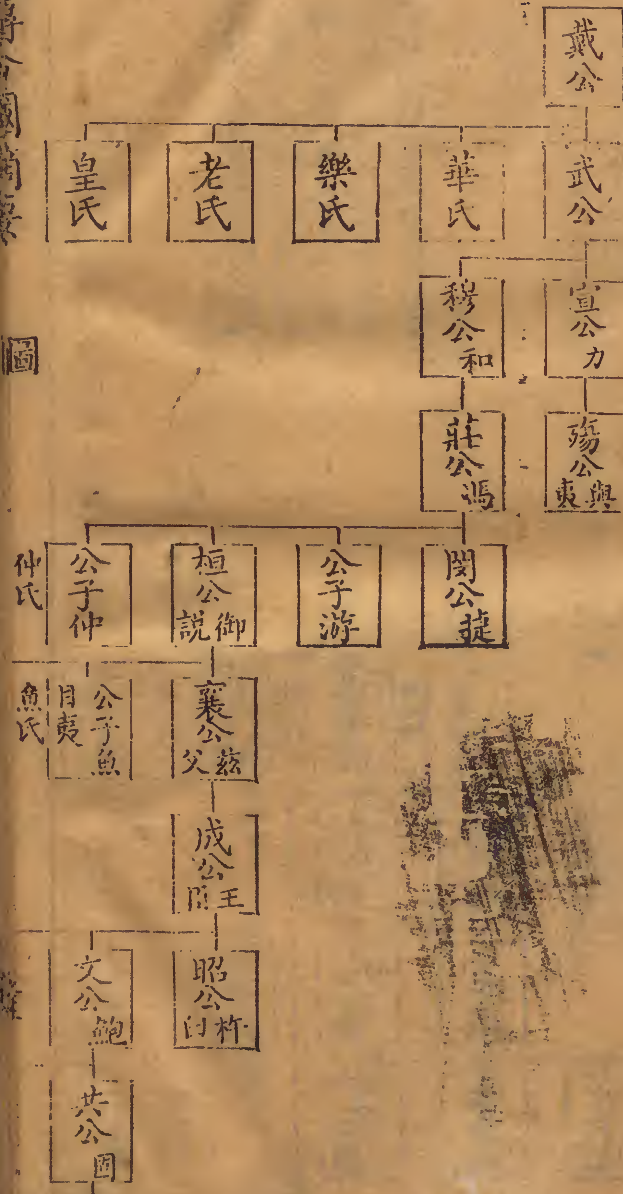 戴公
武公
華氏
樂氏
老氏
皇氏
宣公力
穆公和
殤公與夷
莊公馮
閔公捷
公子游
桓公御説
公子仲
仲氏
襄公兹父
公子魚目夷
魚氏
成公王臣
昭公杵臼
文公鮑
共公固
圖